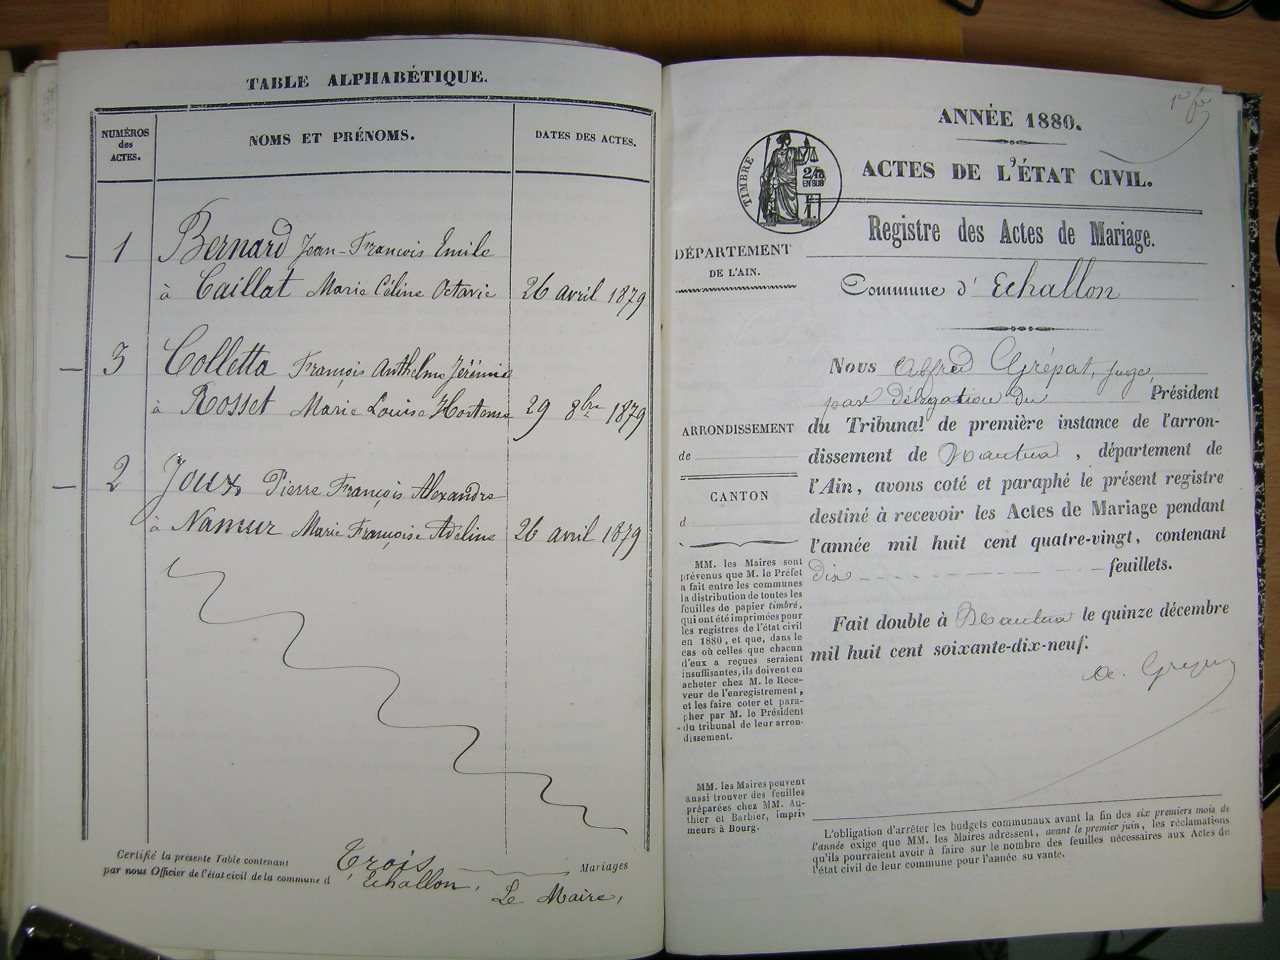 TABLE ALPHABÉTIQUE.
NUMÉROS
des
ACTES.
NOMS ET PRÉNOMS.
DATES DES ACTES.
1 Bernard Jean-François Emile
à Caillat Marie Céline Octavie 26 avril 1879
3 Colletta François Anthelme Jérémie
à Rosset Marie Louise Hortense 29 8bre 1879
2 Joux Pierre François Alexandre
à Namur Marie Françoise Adéline 26 avril 1879
Certifié la présente Table contenant Trois Mariages
par nous Officier de l'état civil de la commune d Echallon,
Le Maire,
ANNÉE 1880.
TIMBRE
2/10
EN SUS
1F
ACTES DE L'ÉTAT CIVIL.
Registre des Actes de Mariage.
DÉPARTEMENT
DE L'AIN.
Commune d' Echallon
ARRONDISSEMENT
de
CANTON
d
MM. les Maires sont
prévenus que M. le Préfet
a fait entre les communes
la distribution de toutes les
feuilles de papier timbré,
qui ont été imprimées pour
les registres de l'état civil
en 1880, et que, dans le
cas où celles que chacun
d'eux a reçues seraient
insuffisantes, ils doivent en
acheter chez M. le Rece-
veur de l'enregistrement,
et les faire coter et para-
pher par M. le Président
du tribunal de leur arron-
dissement.
MM. les Maires peuvent
aussi trouver des feuilles
préparées chez MM. Au-
thier et Barbier, impri-
meurs à Bourg.
Nous Alfred Grépat, juge,
par délégation du Président
du Tribunal de première instance de l'arron-
dissement de Nantua, département de
l'Ain, avons coté et paraphé le présent registre
destiné à recevoir les Actes de Mariage pendant
l'année mil huit cent quatre-vingt, contenant
dix feuillets.
Fait double à Nantua le quinze décembre
mil huit cent soixante-dix-neuf.
L'obligation d'arrêter les budgets communaux avant la fin des six premiers mois de
l'année exige que MM. les Maires adressent, avant le premier juin, les réclamations
qu'ils pourraient avoir à faire sur le nombre des feuilles nécessaires aux Actes de
l'état civil de leur commune pour l'année suivante.